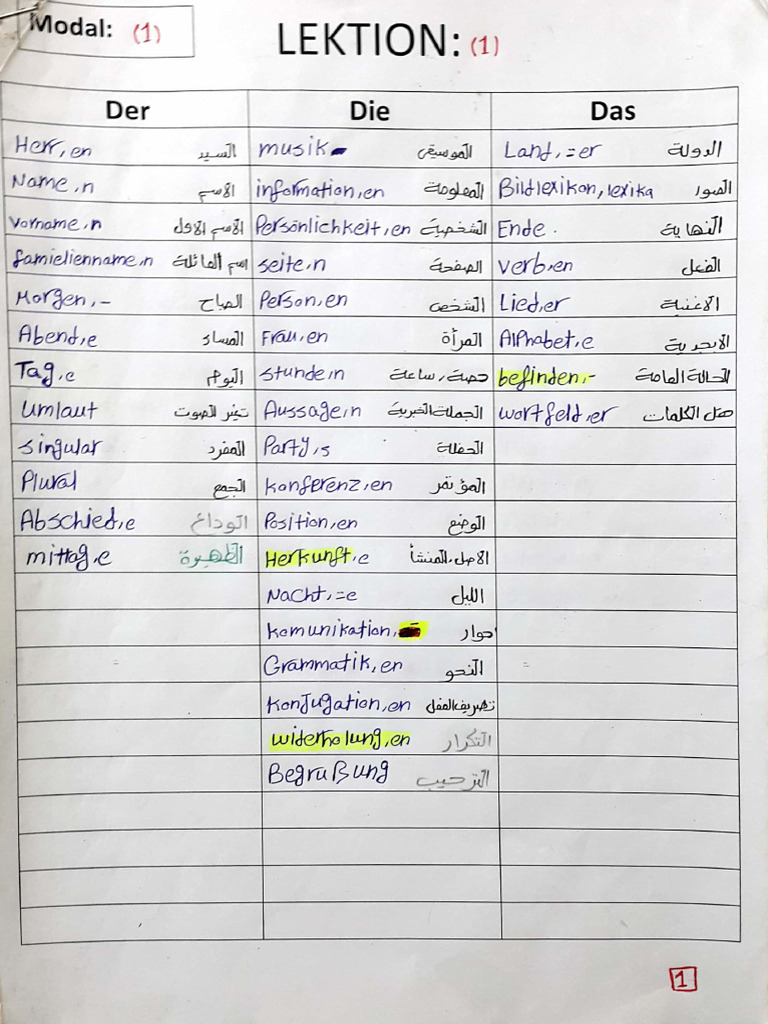 Modal: (1)
LEKTION: (1)
Der Die Das
Herr, en السيد musik الموسيقى Land, =er الدولة
Name, n الاسم information, en المعلومة Bildlexikon, lexika الصور
Vorname, n الاسم الاول Persönlichkeit, en الشخصية Ende. النهاية
familienname, n اسم العائلة seite, n الصفحة verb, en الفعل
Morgen, - الصباح Person, en الشخص Lied, er الاغنية
Abend, e المساء Frau, en المرأة Alphabet, e الابجدية
Tag, e اليوم stunde, n حصة، ساعة befinden, - الحالة العامة
umlaut تغير الصوت Aussage, n الجملة الخبرية wortfeld, er حقل الكلمات
singular المفرد Party, s الحفلة
Plural الجمع konferenz, en المؤتمر
Abschied, e الوداع Position, en الوضع
mittag, e الظهيرة Herkunft, e الاصل، المنشأ
Nacht, =e الليل
komunikation, حوار
Grammatik, en النحو
konjugation, en تصريف الفعل
widerholung, en التكرار
Begrußung الترحيب
1